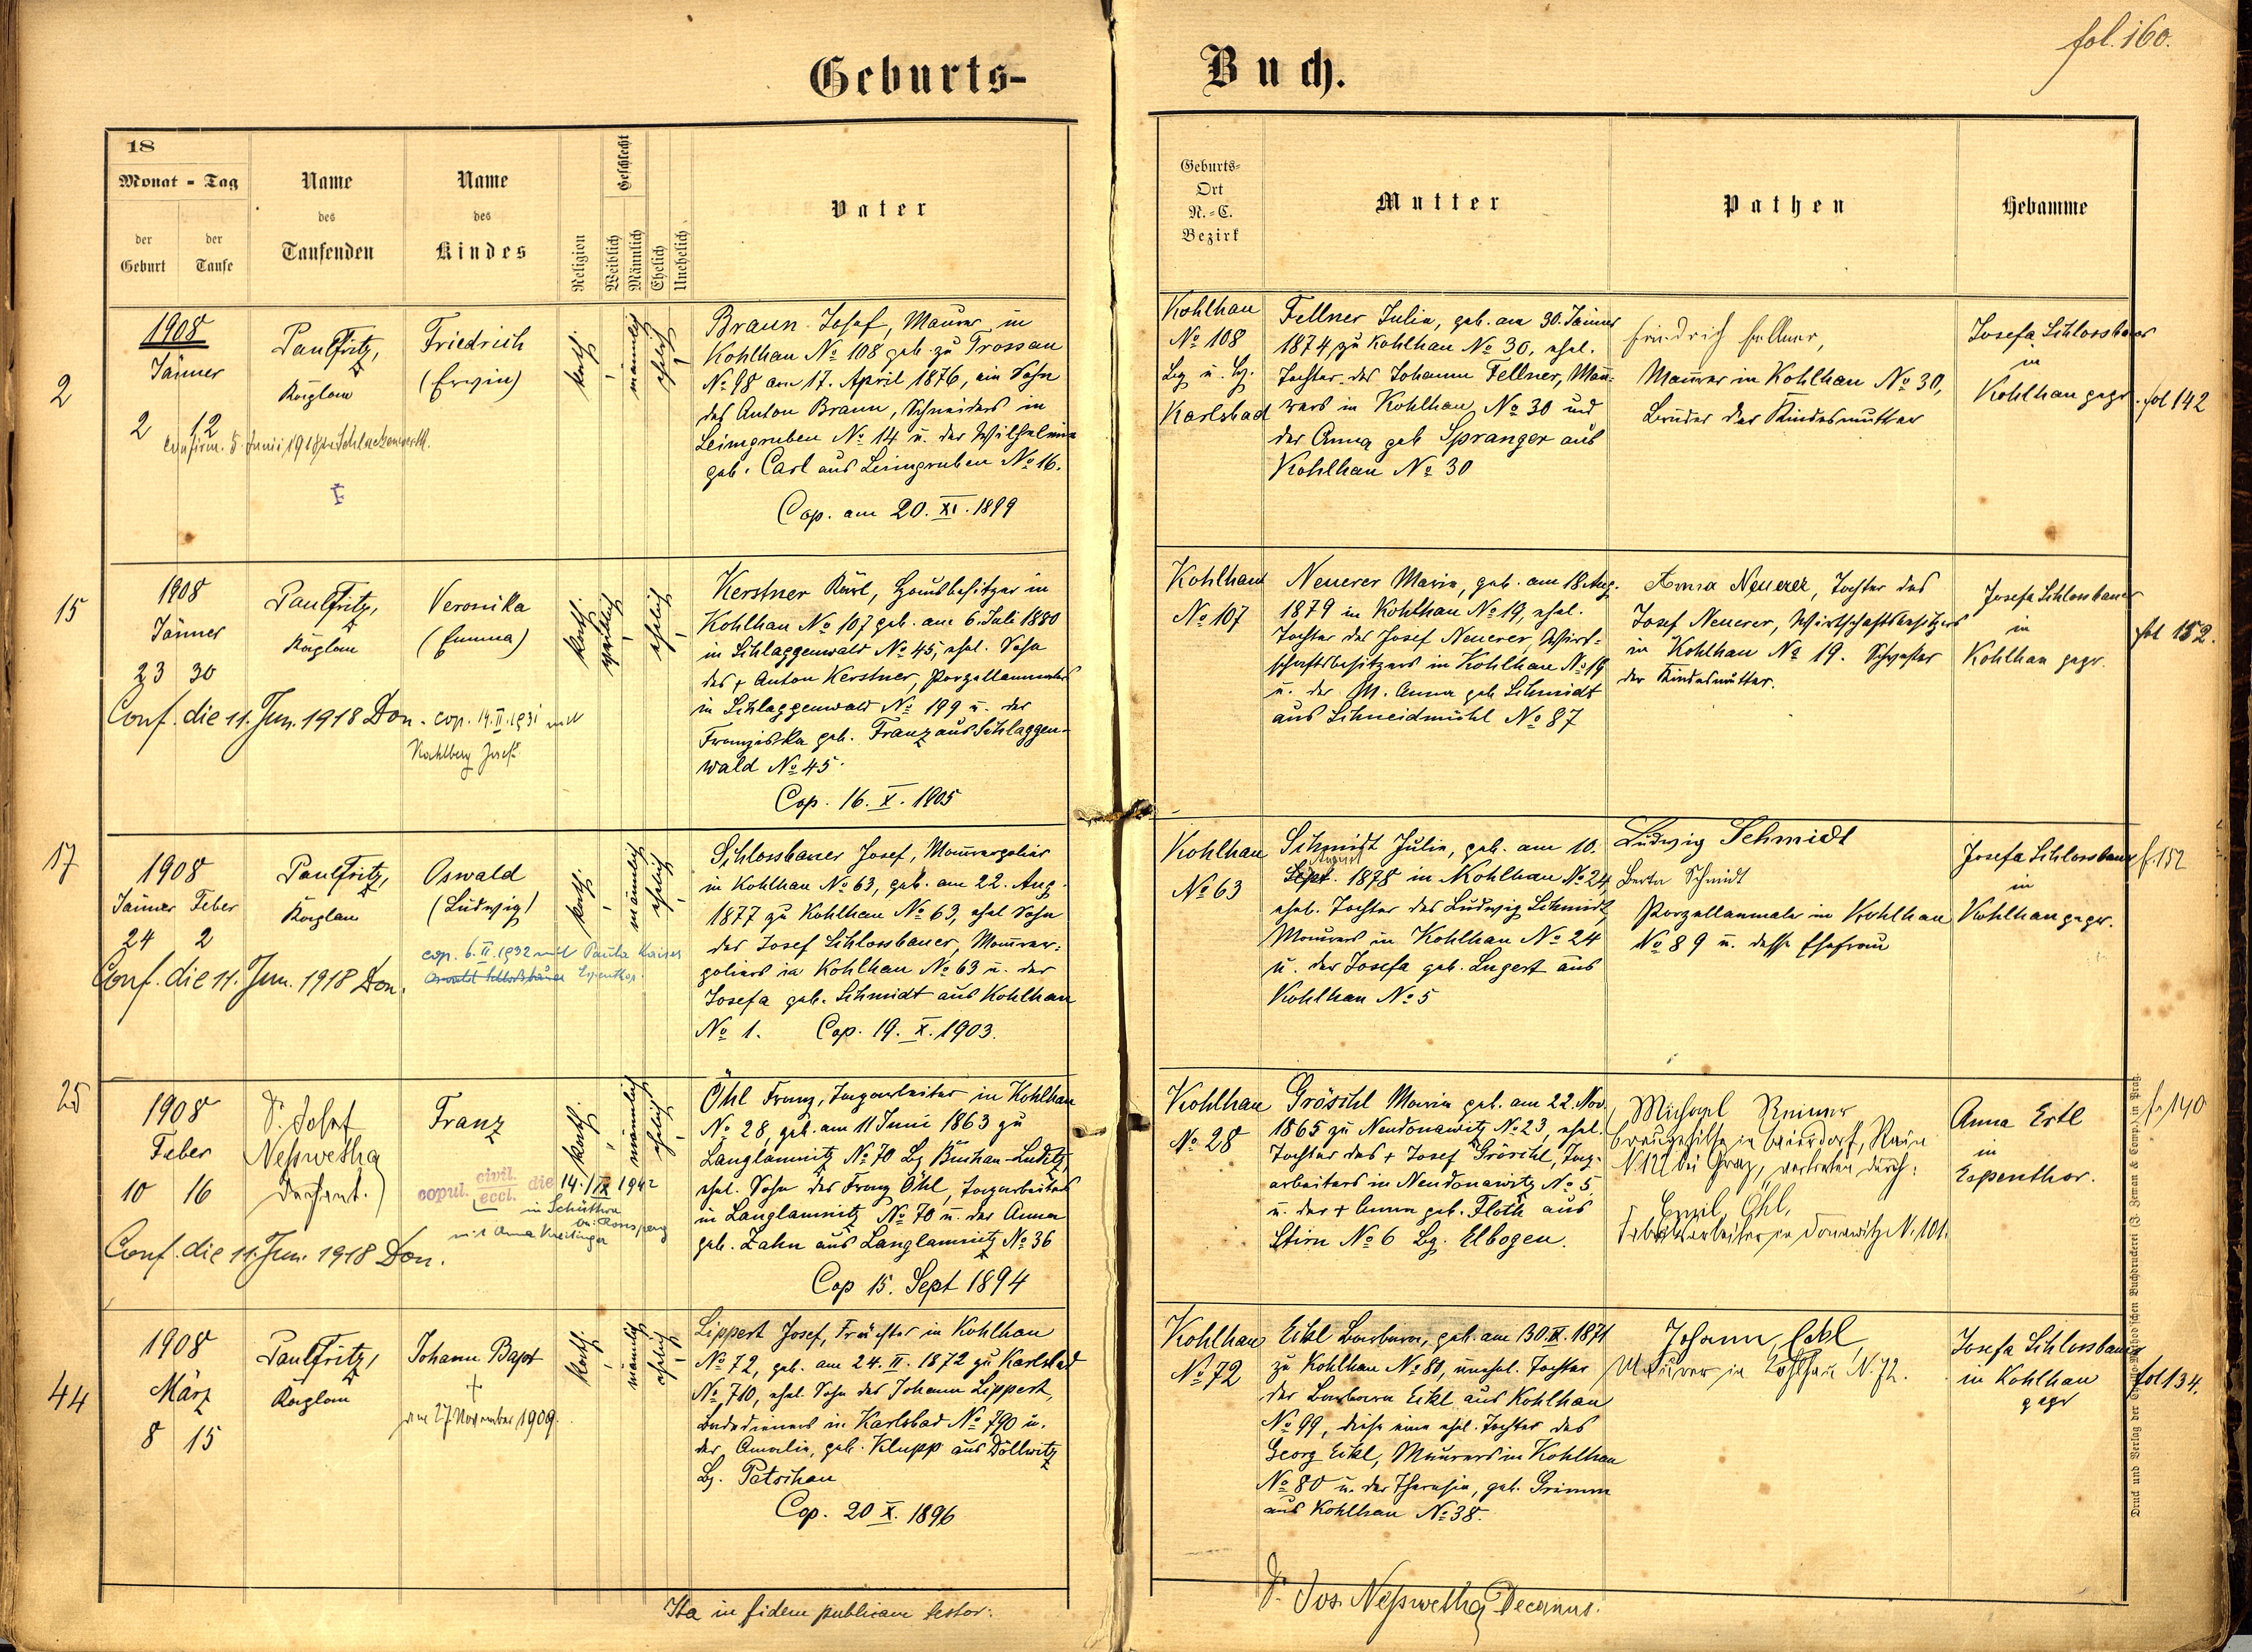 fol. 160.
Geburts-
Buch.
18
Monat - Tag
der Geburt
der Taufe
Name
des
Taufenden
Name
des
Kindes
Religion
Geschlecht
Weiblich
Männlich
Ehelich
Unehelich
Vater
Geburts-
Ort
N.-C.
Bezirk
Mutter
Pathen
Hebamme
2
1908
Jänner
2 12
Confirm. 5. Juni 1918 in Schlackenwerth.
Paul Fritz,
Kaplan
Friedrich
(Erwin)
kath.
männlich
ehelich
Braun Josef, Maurer in
Kohlhau № 108 geb. zu Trossau
№ 98 am 17. April 1876, ein Sohn
des Anton Braun, Schneiders in
Leimgruben № 14 u. der Wilhelmine
geb. Carl aus Leimgruben № 16.
Cop. am 20. XI. 1899
Kohlhau
№ 108
Bz u. Bz.
Karlsbad
Fellner Julia, geb. am 30. Jänner
1874 zu Kohlhau № 30, ehel.
Tochter des Johann Fellner, Mau-
rers in Kohlhau № 30 und
der Anna geb Spranger aus
Kohlhau № 30
Friedrich Fellner,
Maurer in Kohlhau № 30,
Bruder der Kindesmutter
Josefa Schlossbauer
in
Kohlhau gepr.
fol 142
15
1908
Jänner
23 30
Conf. die 11. Jun. 1918 Don.
Paul Fritz,
Kaplan
Veronika
(Emma)
cop. 14. II. 1931 mit
Josef
kath.
weiblich
ehelich
Kerstner Karl, Hausbesitzer in
Kohlhau № 107 geb. am 6. Juli 1880
in Schlaggenwald № 45, ehel. Sohn
des † Anton Kerstner, Porzellanmalers
in Schlaggenwald № 199 u. der
Franziska geb. Franz aus Schlaggen-
wald № 45.
Cop. 16. X. 1905
Kohlhau
№ 107
Neuerer Maria, geb. am 18 Aug.
1879 in Kohlhau № 19, ehel.
Tochter des Josef Neuerer, Wirt-
schaftsbesitzers in Kohlhau № 19
u. der M. Anna geb Schmidt
aus Schneidmühl № 87
Anna Neuerer, Tochter des
Josef Neuerer, Wirtschaftsbesitzers
in Kohlhau № 19. Schwester
der Kindesmutter.
Josefa Schlossbauer
in
Kohlhau gepr.
fol 152.
17
1908
Jänner Feber
24 2
Conf. die 11. Jun. 1918 Don.
Paul Fritz,
Kaplan
Oswald
(Ludwig)
cop. 6. II. 1932 mit Paula Kaiser
Oswald Schloßbauer Espenthor.
kath.
männlich
ehelich
Schlossbauer Josef, Maurerpolier
in Kohlhau № 63, geb. am 22. Aug.
1877 zu Kohlhau № 63, ehel Sohn
des Josef Schlossbauer, Maurer-
poliers in Kohlhau № 63 u. der
Josefa geb. Schmidt aus Kohlhau
№ 1. Cop. 19. X. 1903.
Kohlhau
№ 63
Schmidt Julia, geb. am 10.
August
Sept. 1878 in Kohlhau № 24
ehel. Tochter des Ludwig Schmidt
Maurers in Kohlhau № 24
u. der Josefa geb. Lugert aus
Kohlhau № 5
Ludwig Schmidt
Berta Schmidt
Porzellanmaler in Kohlhau
№ 89 u. dessen Ehefrau
Josefa Schlossbauer
in
Kohlhau gepr.
f. 152
25
1908
Feber
10 16
Conf. die 11. Jun. 1918 Don.
Dr. Josef
Neßwetha
Dechant.
Franz
copul. civil. eccl. die 14./IX 1942
in Schüttwa
Ronsperg
mit Anna
kath.
männlich
ehelich
Öhl Franz, Tagarbeiter in Kohlhau
№ 28, geb. am 11 Juni 1863 zu
Langlamnitz № 70 Bz Buchau-Luditz,
ehel. Sohn des Franz Öhl, Tagarbeiters
in Langlamnitz № 70 u. der Anna
geb. Zahn aus Langlamnitz № 36
Cop 15. Sept 1894
Kohlhau
№ 28
Gröschl Maria geb. am 22. Nov.
1865 zu Neudonawitz № 23, ehel.
Tochter des † Josef Gröschl, Tag-
arbeiters in Neudonawitz № 5
u. der † Anna geb. Floth aus
Stirn № 6 Bz. Elbogen.
Michael Reimer
in Baierdorf,
N. 122 bei Graz, vertreten durch:
Emil Öhl,
Fabriksarbeiter in Donawitz N. 101.
Anna Ertl
in
Espenthor.
f. 140
44
1908
März
8 15
Paul Fritz,
Kaplan
Johann Bapt
†
am 27. November 1909.
kath.
männlich
ehelich
Lippert Josef, Frächter in Kohlhau
№ 72, geb. am 24. II. 1872 zu Karlsbad
№ 710, ehel. Sohn des Johann Lippert,
Badedieners in Karlsbad № 790 u.
der Amalia, geb. Klupp aus Döllwitz
Bz. Petschau
Cop. 20 X. 1896
Kohlhau
№ 72
Eckl Barbara, geb. am 30. IX. 1871
zu Kohlhau № 81, unehel. Tochter
der Barbara Eckl aus Kohlhau
№ 99, diese eine ehel. Tochter des
Georg Eckl, Maurers in Kohlhau
№ 80 u. der Theresia, geb. Grimm
aus Kohlhau № 38.
Johann Eckl,
Maurer in Kohlhau N. 72.
Josefa Schlossbauer
in Kohlhau
gepr
fol 134.
Ita in fidem publicam testor:
Dr. Jos. Neßwetha Decanus.